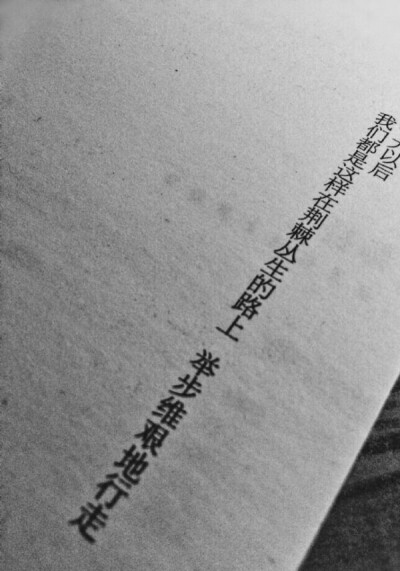 以后
我们都是这样在荆棘丛生的路上 举步维艰地行走